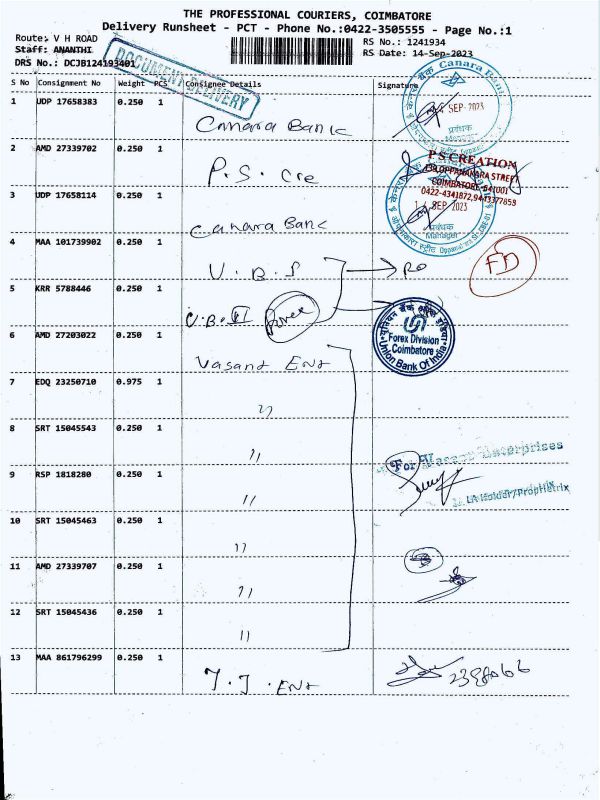 THE PROFESSIONAL COURIERS, COIMBATORE
Delivery Runsheet - PCT - Phone No.:0422-3505555 - Page No.:1
Route: V H ROAD
RS No.: 1241934
Staff: ANANTHI
RS Date: 14-Sep-2023
DRS No.: DCJB124193401
DOCUMENT DELIVERY
S No Consignment No Weight PCS Consignee Details Signature
1 UDP 17658383 0.250 1 Canara Bank
Canara Bank
SEP 2023
प्रबंधक
Manager
2 AMD 27339702 0.250 1 P.S. Cre
P S CREATION
OPPANAKARA STREET
COIMBATORE-641001
0422-4341872, 9443377859
3 UDP 17658114 0.250 1 Canara Bank
14 SEP 2023
प्रबंधक
Manager
4 MAA 101739902 0.250 1 U.B.I
RO
FD
5 KRR 5788446 0.250 1 U.B.I Forex
यूनियन बैंक ऑफ इंडिया
Forex Division
Coimbatore
Union Bank Of India
6 AMD 27203022 0.250 1 Vasant Ent
7 EDQ 23250710 0.975 1 "
8 SRT 15045543 0.250 1 "
For Vasant Enterprises
9 RSP 1818280 0.250 1 "
LA Holder/Proprietrix
10 SRT 15045463 0.250 1 "
11 AMD 27339707 0.250 1 "
12 SRT 15045436 0.250 1 "
13 MAA 861796299 0.250 1 T.J. Ent